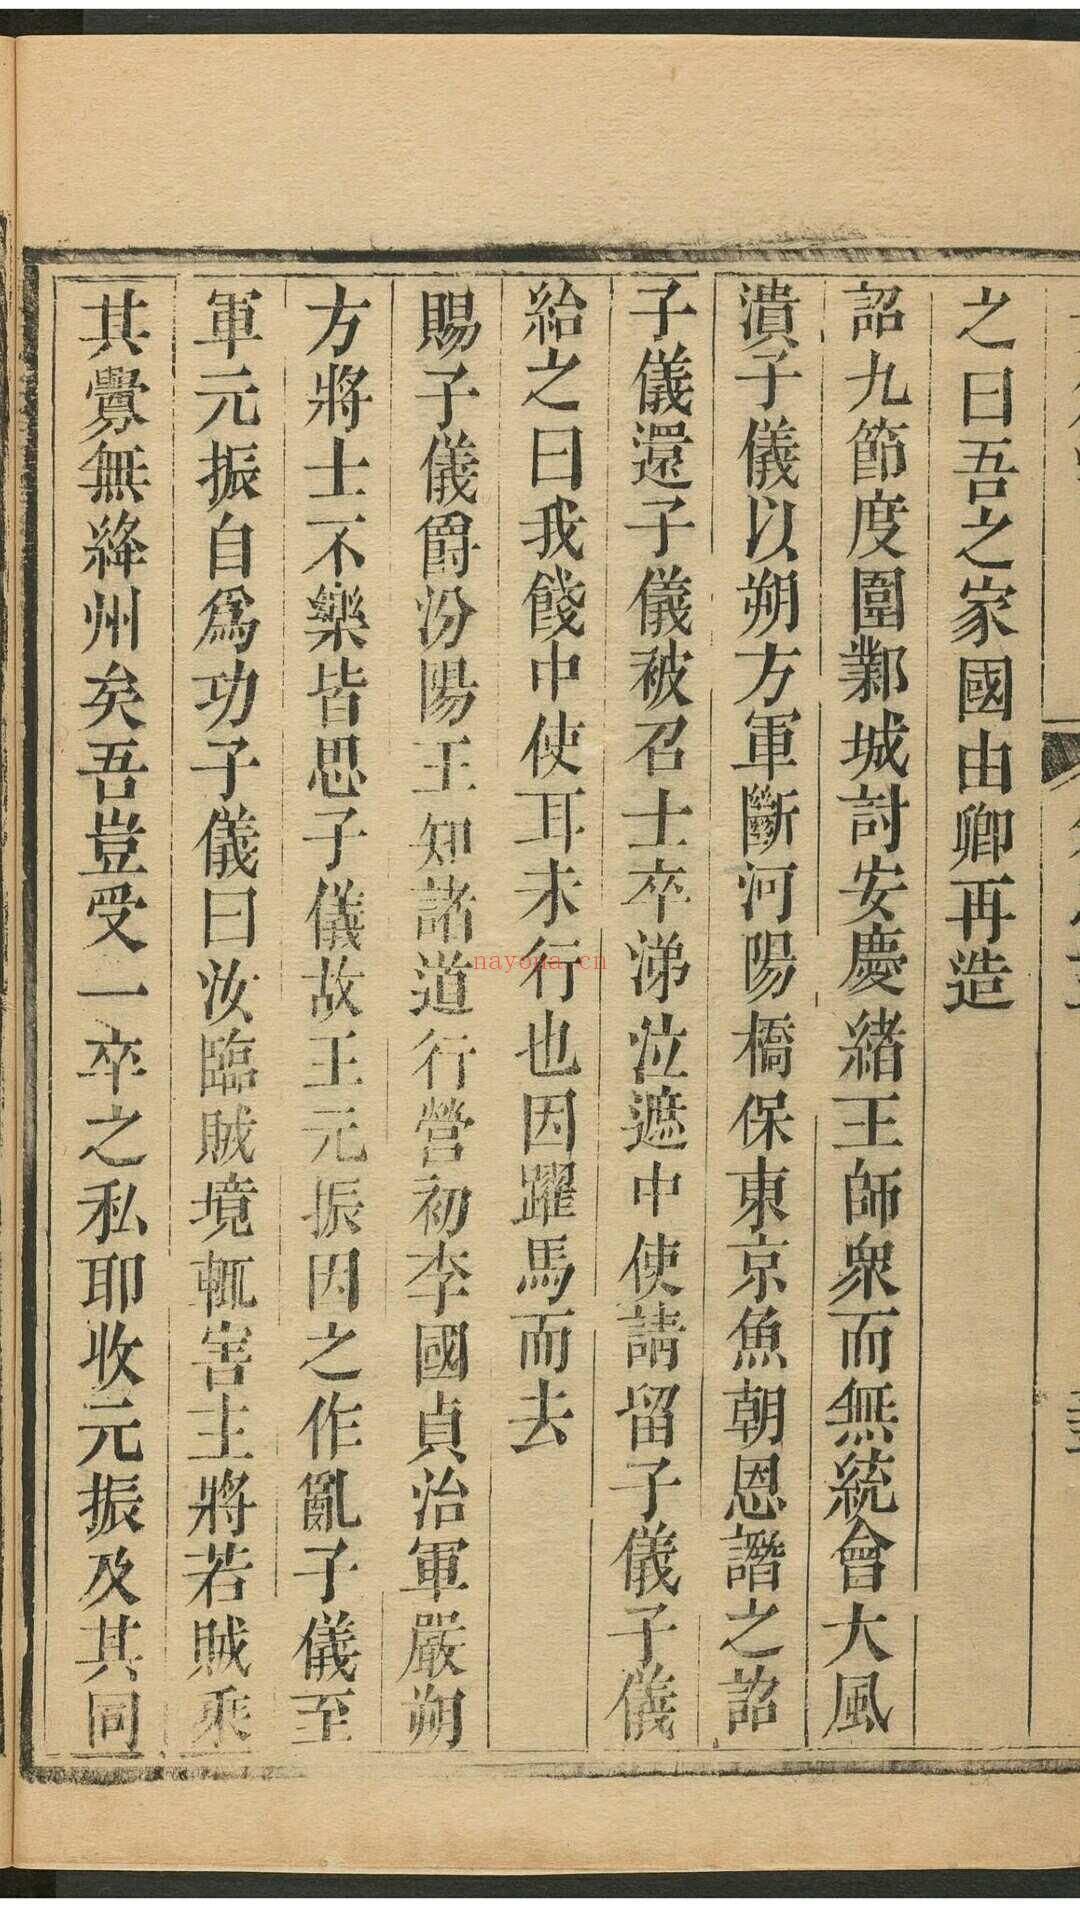 之曰吾之家國由卿再造
詔九節度圍鄴城討安慶緒王師衆而無統會大風
潰子儀以朔方軍斷河陽橋保東京魚朝恩譖之詔
子儀還子儀被召士卒涕泣遮中使請留子儀子儀
紿之曰我餞中使耳未行也因躍馬而去
賜子儀爵汾陽王知諸道行營初李國貞治軍嚴朔
方將士不樂皆思子儀故王元振因之作亂子儀至
軍元振自爲功子儀曰汝臨賊境輒害主將若賊乘
其釁無絳州矣吾豈受一卒之私耶收元振及其同
nayona.cn